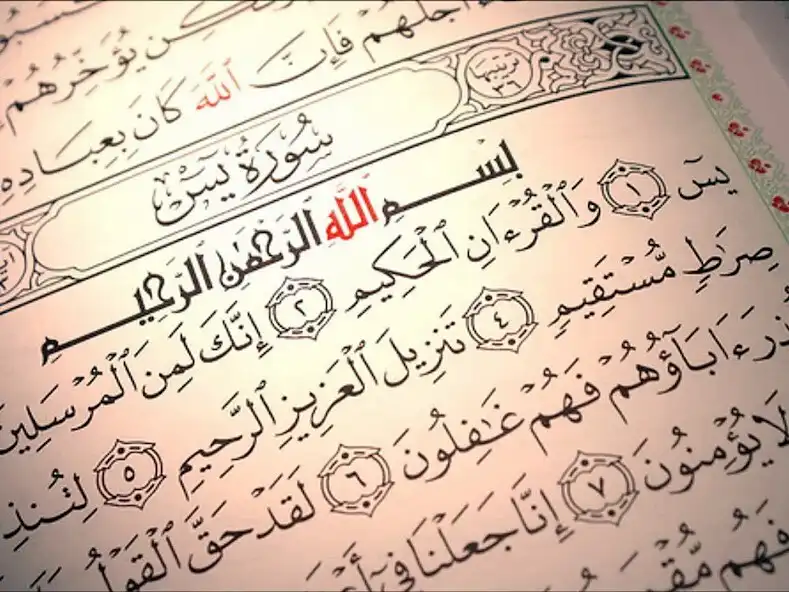 كن يُؤَخِّرُهُمْ
أَجَلُهُمْ فَإِنَّ ٱللَّهَ كَانَ بِعِبَادِهِ
ترتيبها ٣٦
سُورَةُ يسٓ
بِسْمِ اللَّهِ الرَّحْمَٰنِ الرَّحِيمِ
يسٓ ١ وَٱلْقُرْءَانِ ٱلْحَكِيمِ ٢ إِنَّكَ لَمِنَ ٱلْمُرْسَلِينَ
صِرَٰطٍ مُّسْتَقِيمٍ ٤ تَنزِيلَ ٱلْعَزِيزِ ٱلرَّحِيمِ ٥ لِتُنذِ
ذِرَ ءَابَآؤُهُمْ فَهُمْ غَٰفِلُونَ ٦ لَقَدْ حَقَّ ٱلْقَوْلُ
لَا يُؤْمِنُونَ ٧ إِنَّا جَعَلْنَا فِىٓ أَ
فَهُم مُّقْ